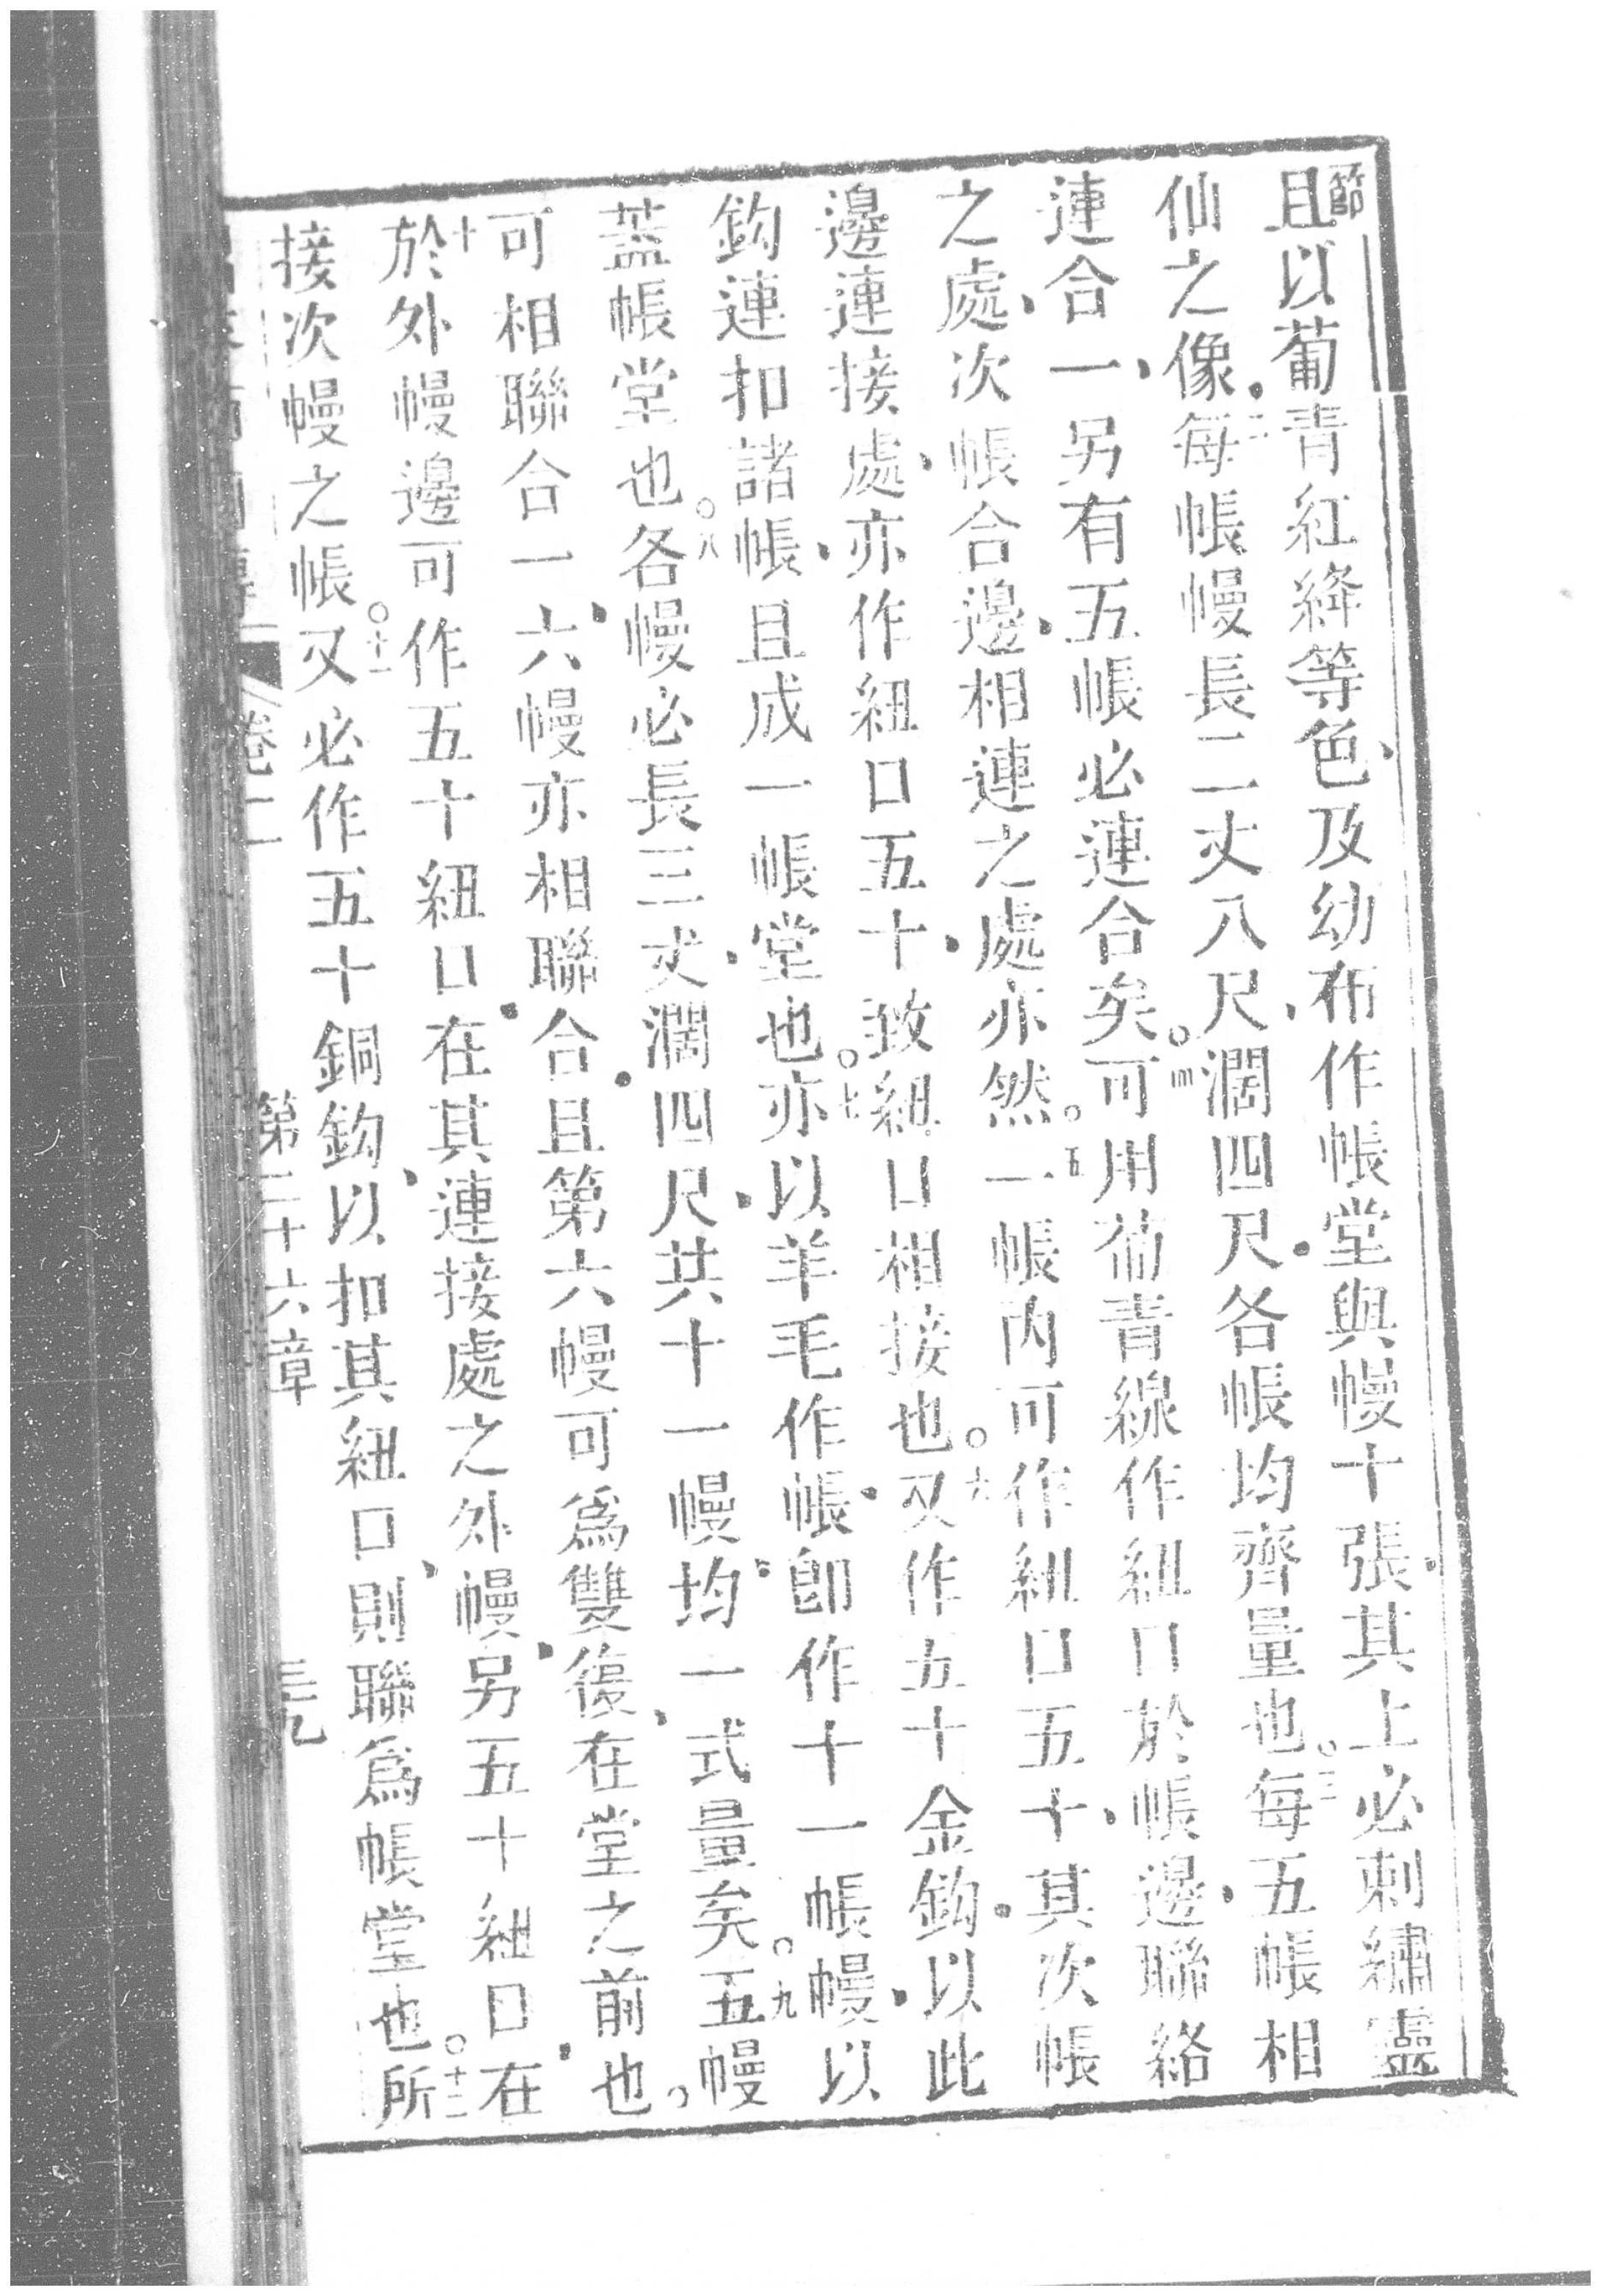 節
且以葡青紅絳等色、及幼布作帳堂與幔十張。其上必刺繡靈
仙之像。二每帳幔長二丈八尺、濶四尺。各帳均齊量也。○三每五帳相
連合一、另有五帳必連合矣。○四可用葡青線作紐口於帳邊、聯絡
之處、次帳合邊、相連之處亦然。○五一帳內可作紐口五十、其次帳
邊連接處、亦作紐口五十、致紐口相接也。○六又作五十金鈎。以此
鈎連扣諸帳、且成一帳堂也。○七亦以羊毛作帳、即作十一帳幔、以
蓋帳堂也。○八各幔必長三丈、濶四尺、共十一幔、均一式量矣。○九五幔
可相聯合一、六幔亦相聯合。且第六幔可爲雙復、在堂之前也。
十於外幔邊可作五十紐口、在其連接處之外幔、另五十紐口、在
接次幔之帳。○十一又必作五十銅鈎、以扣其紐口、則聯爲帳堂也。○十二所
卷二 第二十六章